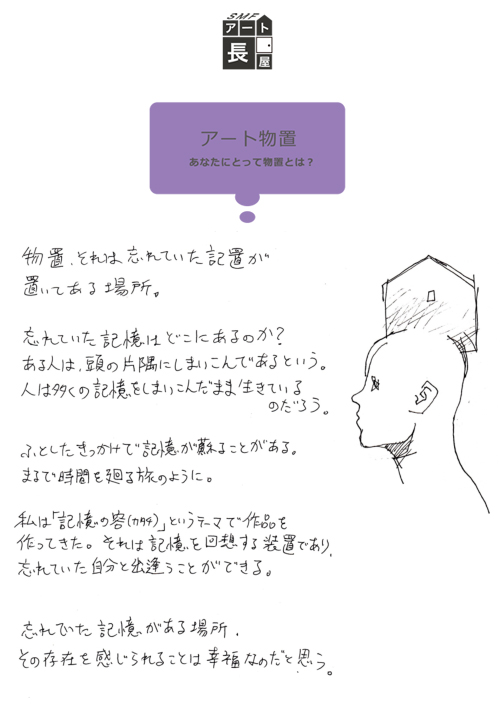 SMF
アート
長屋
アート物置
あなたにとって物置とは？
物置、それは忘れていた記置が
置いてある場所。
忘れていた記憶はどこにあるのか？
ある人は、頭の片隅にしまいこんであるという。
人は多くの記憶をしまいこんだまま生きている
のだろう。
ふとしたきっかけで記憶が蘇ることがある。
まるで時間を廻る旅のように。
私は「記憶の容(カタチ)」というテーマで作品を
作ってきた。それは記憶を回想する装置であり、
忘れていた自分と出逢うことができる。
忘れていた記憶がある場所、
その存在を感じられることは幸福なのだと思う。